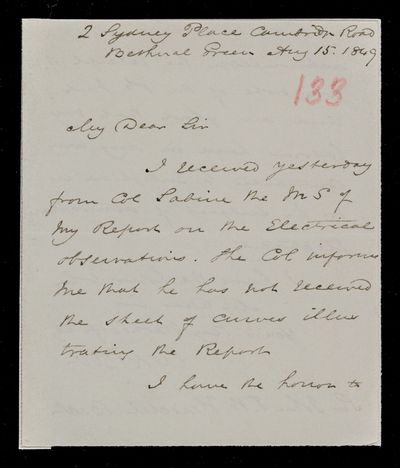 2 Sydney Place Cambridge Road
Bethnal Green Aug 15. 1849
133
My Dear Sir
I received yesterday
from Col Sabine the MS of
my Report on the Electrical
observations. The Col informs
me that he has not received
the sheet of curves illus
trating the Report
I have the honor to